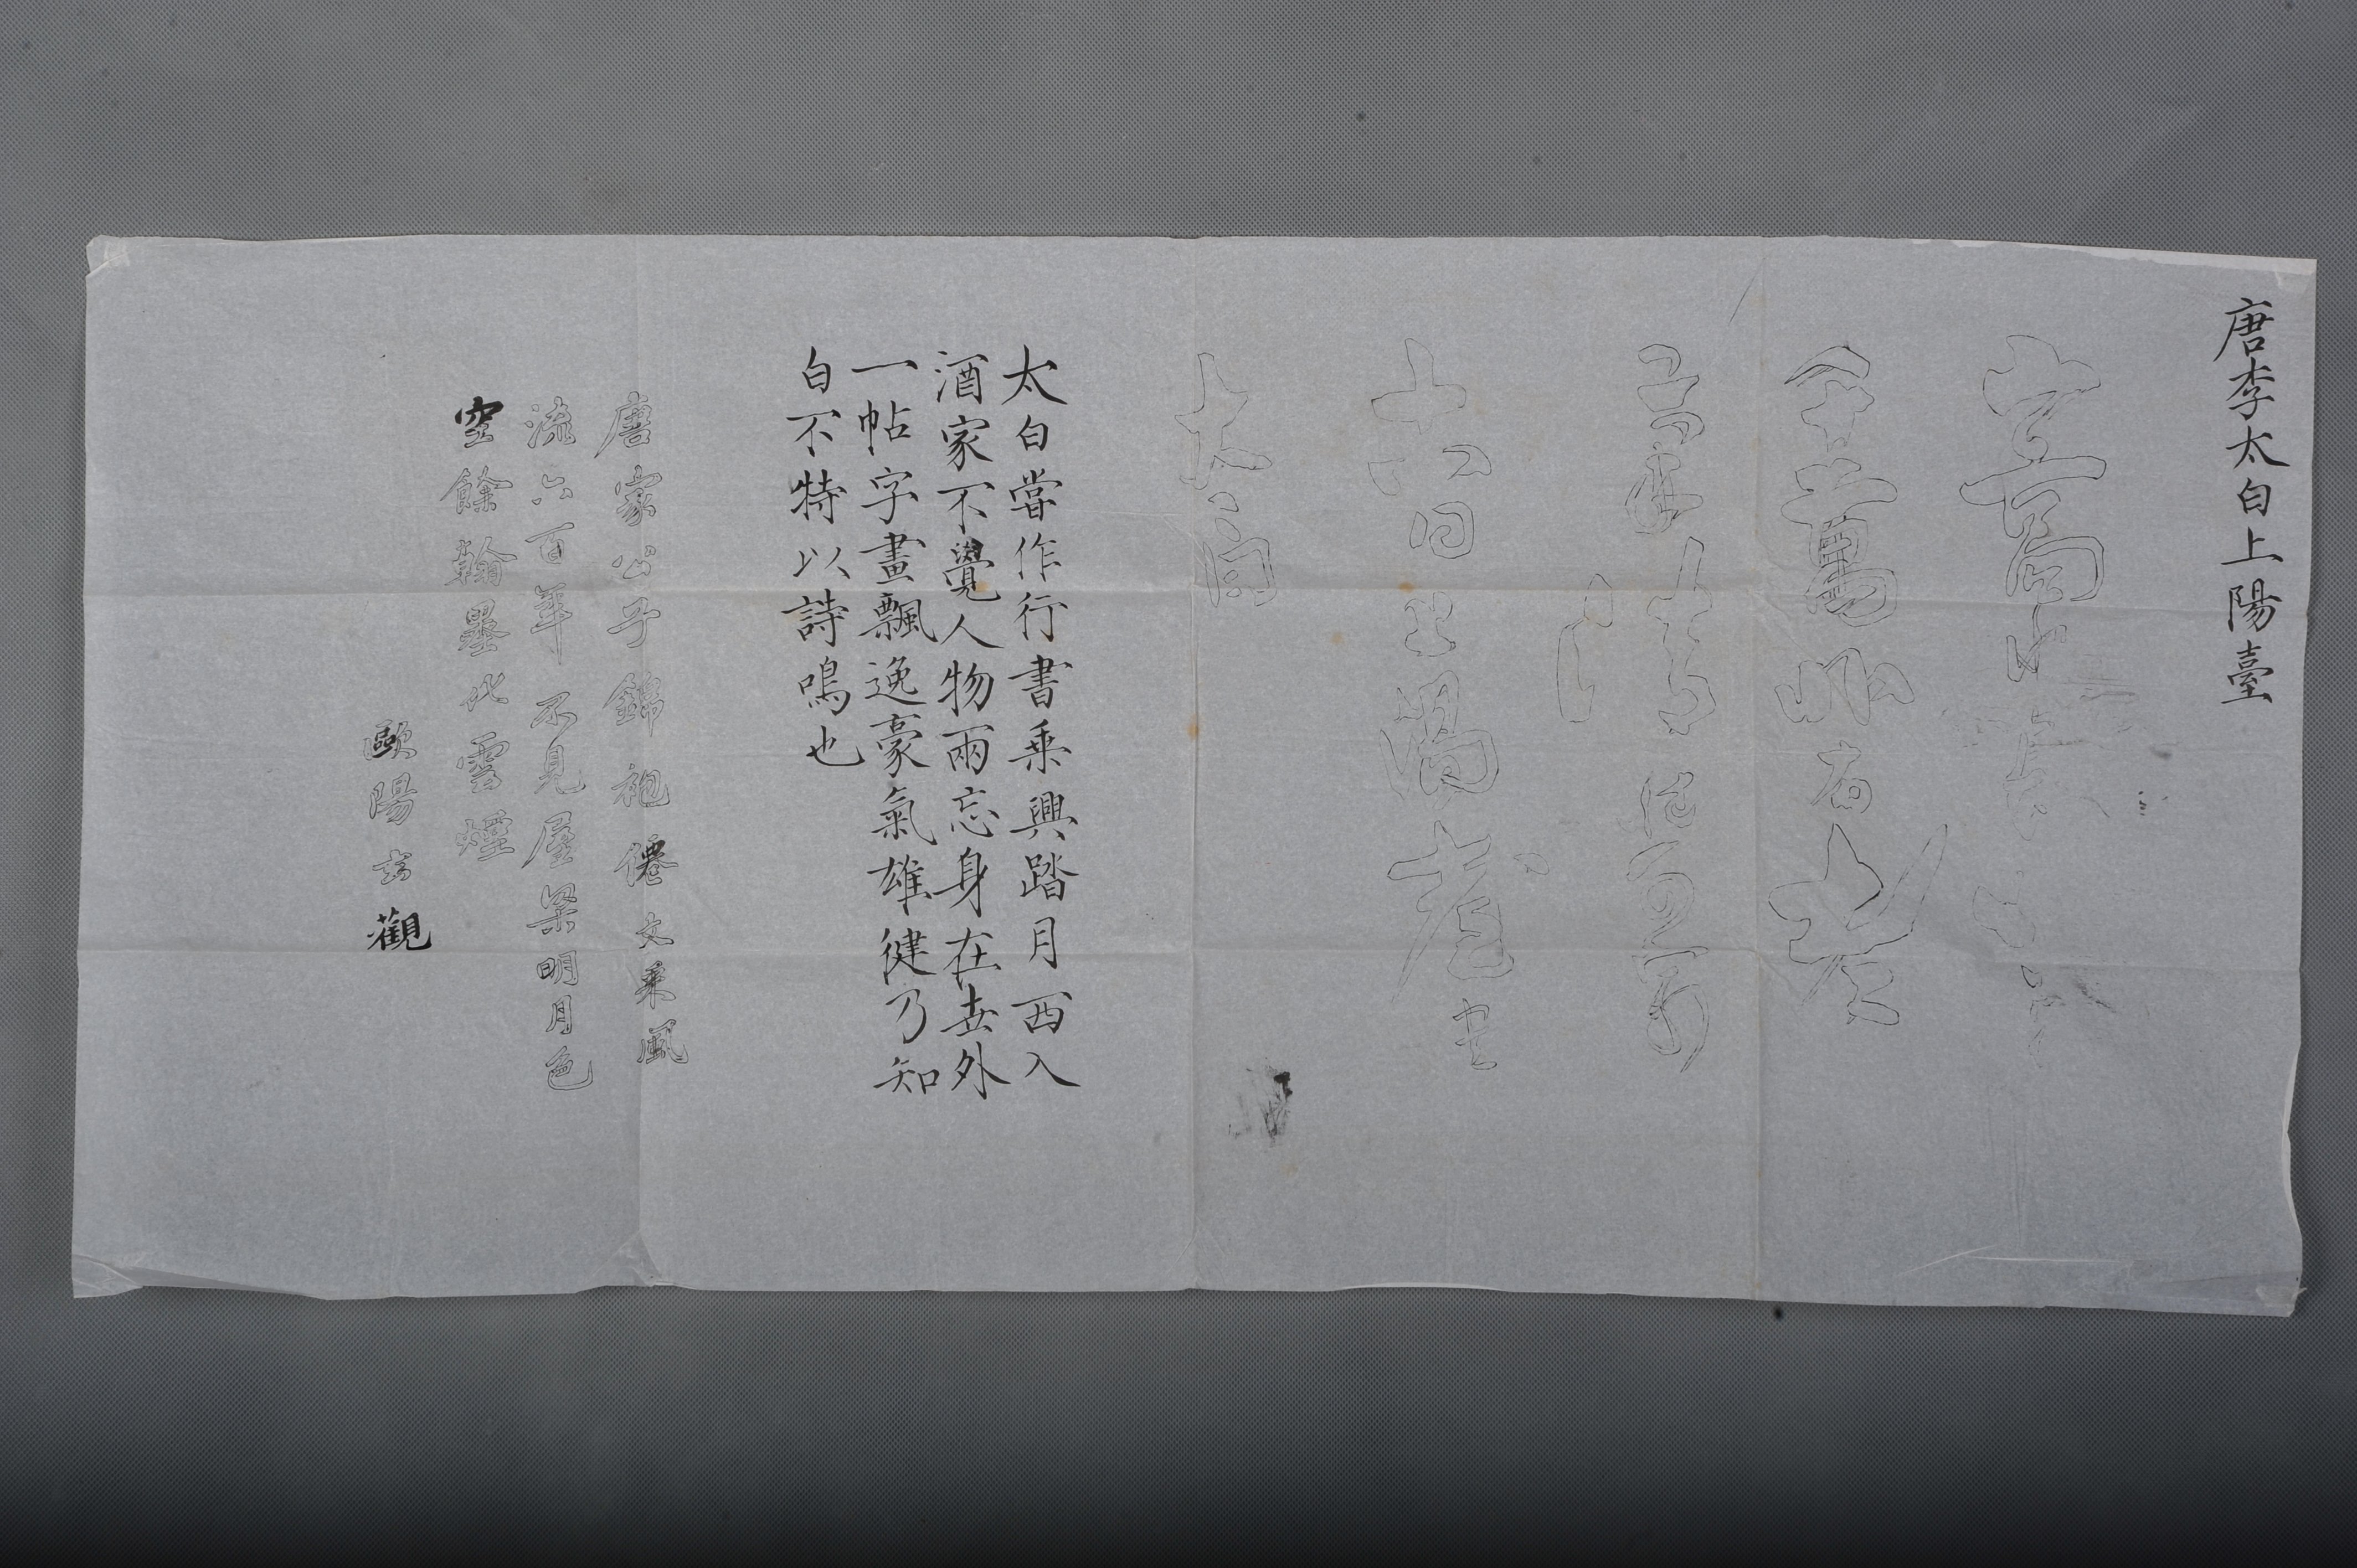 唐李太白上陽臺
山高水長物象
千萬非有老
筆清壯可窮
十八日上陽臺書
太白
太白嘗作行書乘興踏月西入
酒家不覺人物兩忘身在世外
一帖字畫飄逸豪氣雄健乃知
白不特以詩鳴也
唐家公子錦袍僊文采風
流六百年不見屋梁明月色
空餘翰墨化雲煙
歐陽玄觀